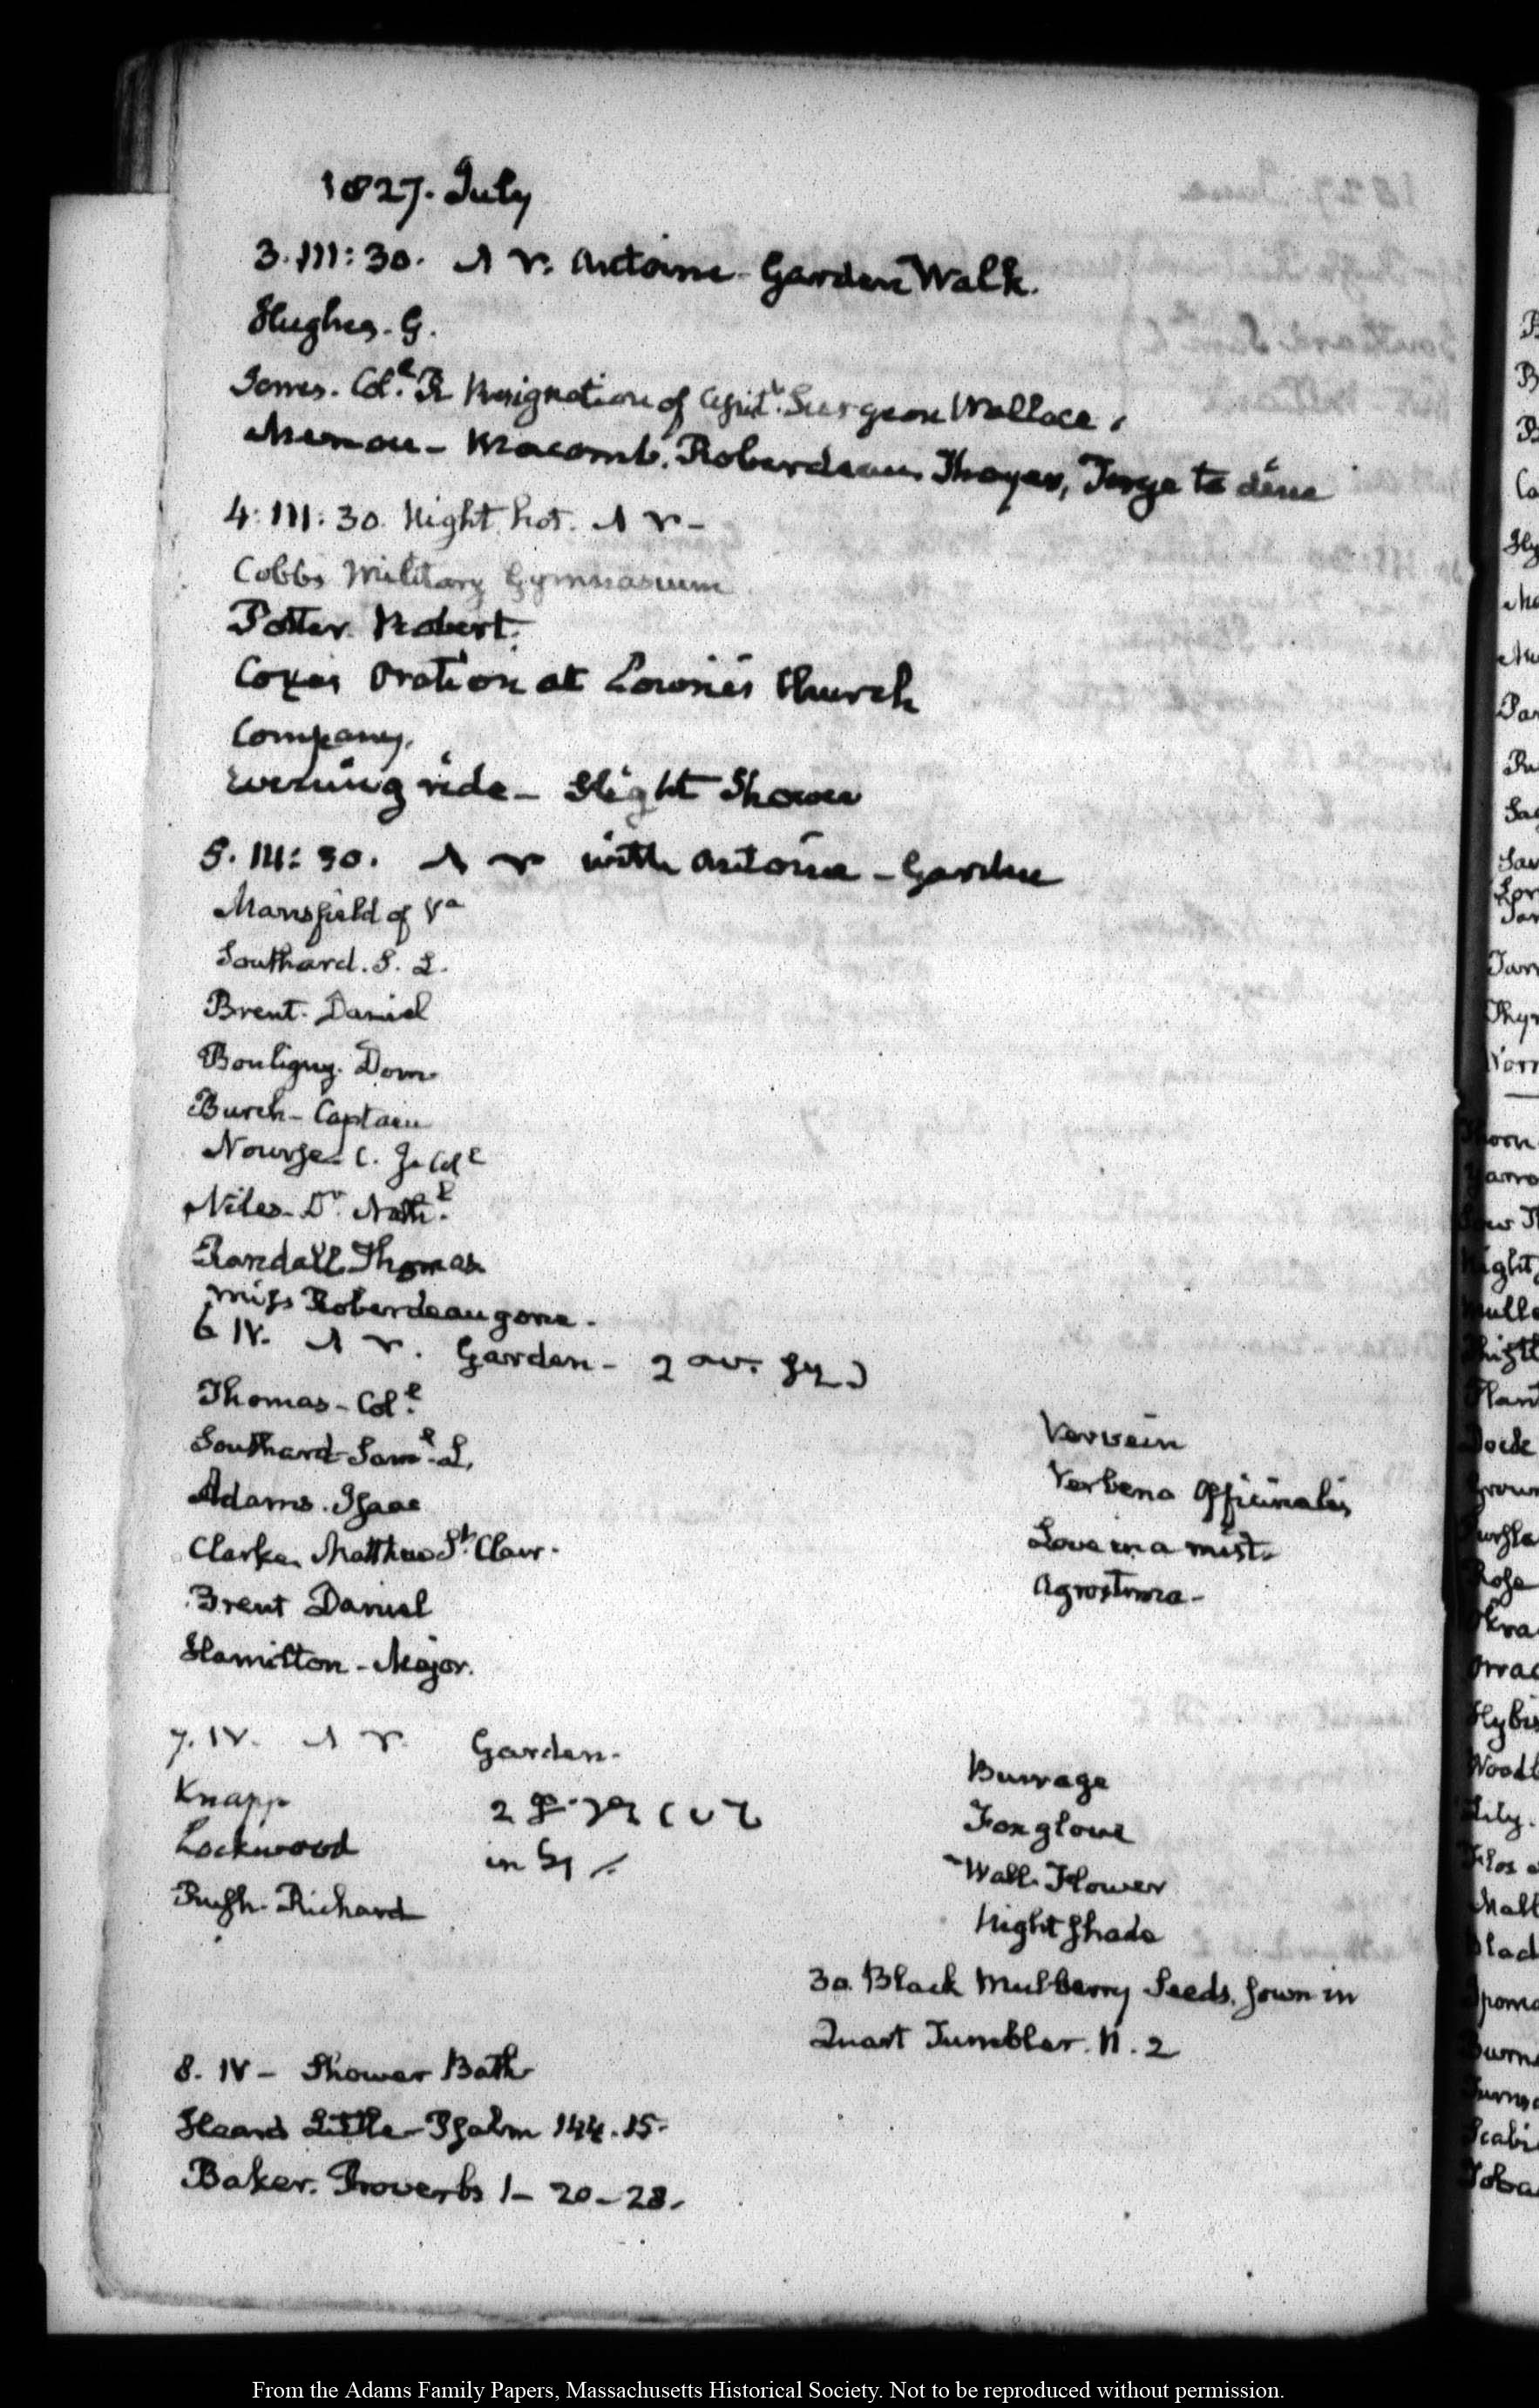 1827. July
3. III: 30. Antoine - Garden Walk.
Hughes. G.
Jones. Col.l R Resignation of Assist.t Surgeon Wallace.
Menou - Macomb. Roberdeau Thayer, to dine
4: III: 30. Night hot.
Cobbs Military Gymnasium
Potter. Robert.
Coxe's Oration at Church
Company.
Evening ride - Slight Shower
5. III: 30. with Antoine - Garden
Mansfield of Va
Southard. S. L.
Brent. Daniel
Bouligny. Dom.
Burch - Captain
Nourse - C. J. Col
Niles - Dr. Nath.l
Randall Thomas
Miss Roberdeau gone.
6 IV. Garden -
Thomas - Col.l
Southard Sam.l L.
Adams. Isaac
Clarke. Matthew St. Clair.
Brent Daniel
Hamilton - Major.
Vervein
Verbena Officinalis
Love in a mist.
Agrostima -
7. IV. Garden.
Knapp
Lockwood in
Rush. Richard
Burrage
Foxglove
Wall. Flower
Night shade
30. Black Mulberry Seeds. sown in
Quart Tumbler. N. 2
8. IV - Shower Bath
Heard Little - Psalm 144. 15.
Baker. Proverbs 1 - 20 - 28.
From the Adams Family Papers, Massachusetts Historical Society. Not to be reproduced without permission.